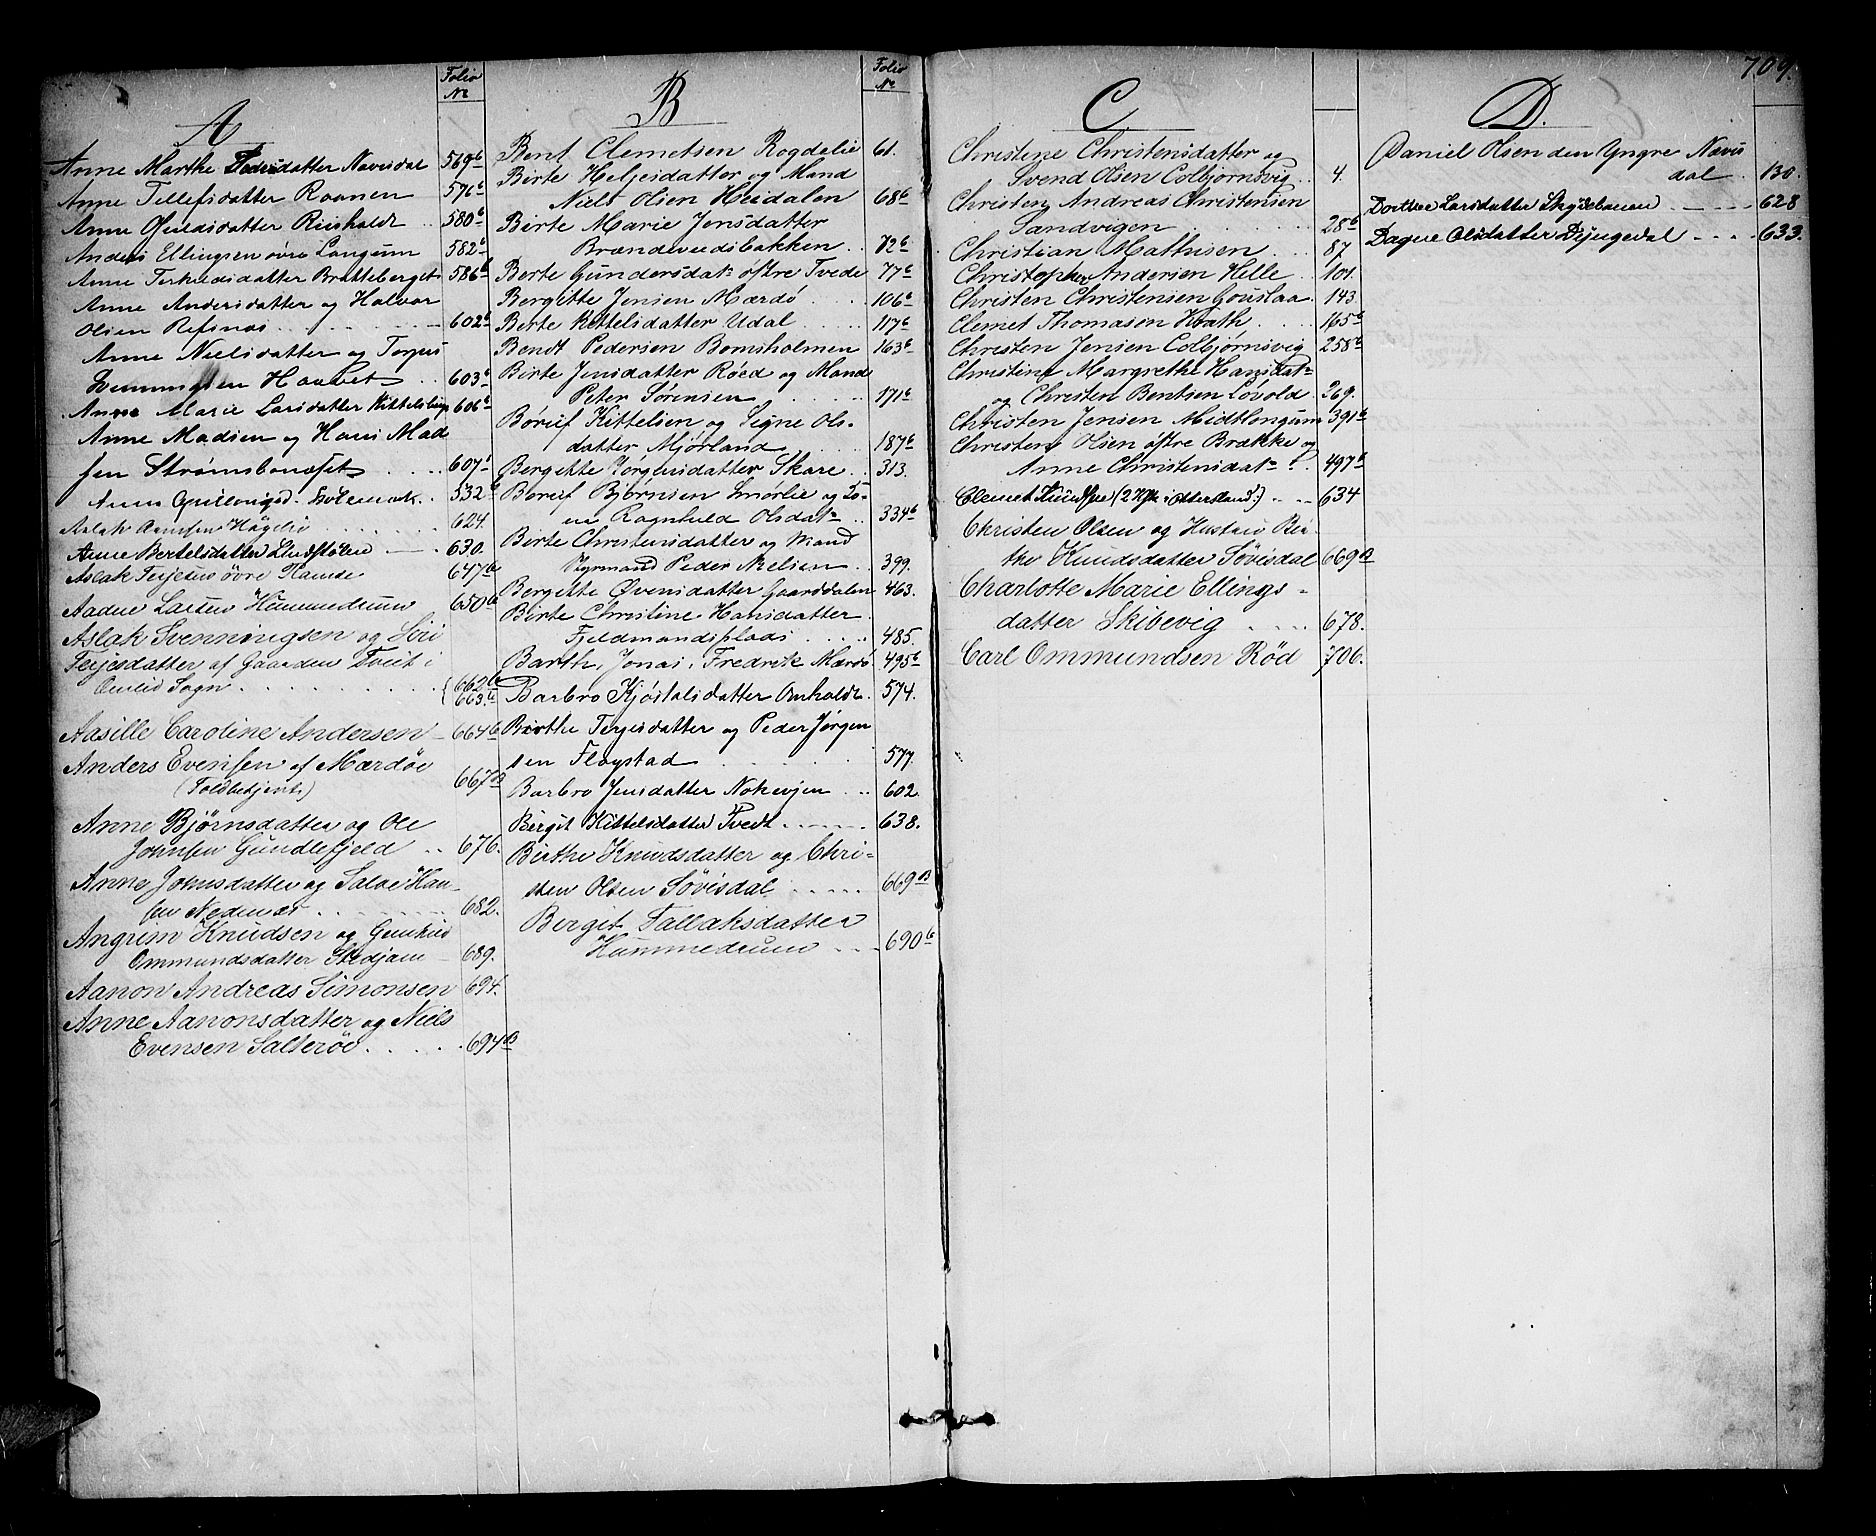 709.
A
Folio
No
Anne Marthe Pedersdatter Navisdal 569b
Anne Tellefsdatter Raanen 576b
Anne Omundsdatter Rinholdt 580b
Anders Ellingsen øvre Langum 582b
Anne Terkildsdatter Bratteberget 586b
Anne Andersdatter og Halvor
Olsen Refsnæs 602b
Anne Nielsdatter og Torjus
Svenningsen Haavet 603b
Anne Marie Larsdatter Kittelsbugt 606b
Anne Madsen og Hans Mad
sen Strømsbonæset 607b
532b
Aslak Aamsen Høgelie 624.
Anne Bertelsdatter Lindstølen 630.
Aslak Terjesen øvre Ramse 647b
Aadne Larsen Hummedrum 650b
Aslak Svenningsen og Siri
Terjesdatter af Gaarden Tveit i
Omlid Sogn 662b
663b
Aasille Caroline Andersen 664b
Anders Evensen af Mærdøe
(Toldbetjent) 667B
Anne Bjørnsdatter og Ole
Johnsen Gundlefjeld 676.
Anne Johnsdatter og Salve Han-
sen Nednæs 682.
Angrim Knudsen og Gunhild
Ommundsdatter Stedjam 689.
Aanon Andreas Simonsen 694.
Anne Aanonsdatter og Niels
Evensen Salterøe 694B
B
Folio
No
Bent Clemetsen Rogdalie 61.
Birte Heljesdatter og Mand
Niels Olsen Heidalen 68b
Birte Marie Jensdatter
Brændeveedsbakken 72b
Berte Gundersdatr østre Tvede 77b
Bergitte Jensen Mærdø 106b
Berte Kittelsdatter Udal 117b
Bendt Pedersen Bomsholmen 163b
Birte Jensdatter Røed og Mand
Peter Sørensen 171b
Børief Kittelsen og Signe Ols-
datter Mjørland 187b
Bergette Jørgensdatter Skare 313.
Børief Bjørnsen Smørlie og Ko-
ne Ragnhild Olsdatr 334b
Birte Christensdatter og Mand
Styrmand Peder Nielsen 399.
Bergitte Øvensdatter Gaarddalen 463.
Birte Christine Hansdatter
Fjeldmandsplads 485.
Barth, Jonas, Fredrik Mærdø 495b
Barbro Kjøstolsdatter Omholdt 574.
Birthe Terjesdatter og Peder Jørgen
sen Flagstad 577.
Barbro Jensdatter Nokevjen 602.
Birgit Kittelsdatter Tvedt 638.
Birthe Knudsdatter og Chri-
sten Olsen Søvisdal 669B
Bergit Tallaksdatter
Hummedrum 690b
C
Christine Christensdatter og
Svend Olsen Colbjørnsvig 4.
Christen Andreas Christensen
Sandvigen 28b
Christian Mathisen 87
Christopher Andersen Helle 101.
Christen Christensen Gouslaa 143.
Clemet Thomasen Kvath 165b
Christen Jensen Colbjørnsvig 258b
Christine Margrethe Hansdatr
og Christen Bentsen Løvold 269.
Christen Jensen Midtlongum 391b
Christen Olsen østre Brække og
Anne Christensdatr 497b
Clemet Knudsen 634
Christen Olsen og Hustrue Bir-
the Knudsdatter Søvisdal 669B
Charlotte Marie Ellings-
datter Skibevig 678.
Carl Ommundsen Rød 706.
D.
Daniel Olsen den Yngre Nævis
dal 130.
Dorthe Larsdatter Skydebanen 628
Dagne Olsdatter Djugedal 633.